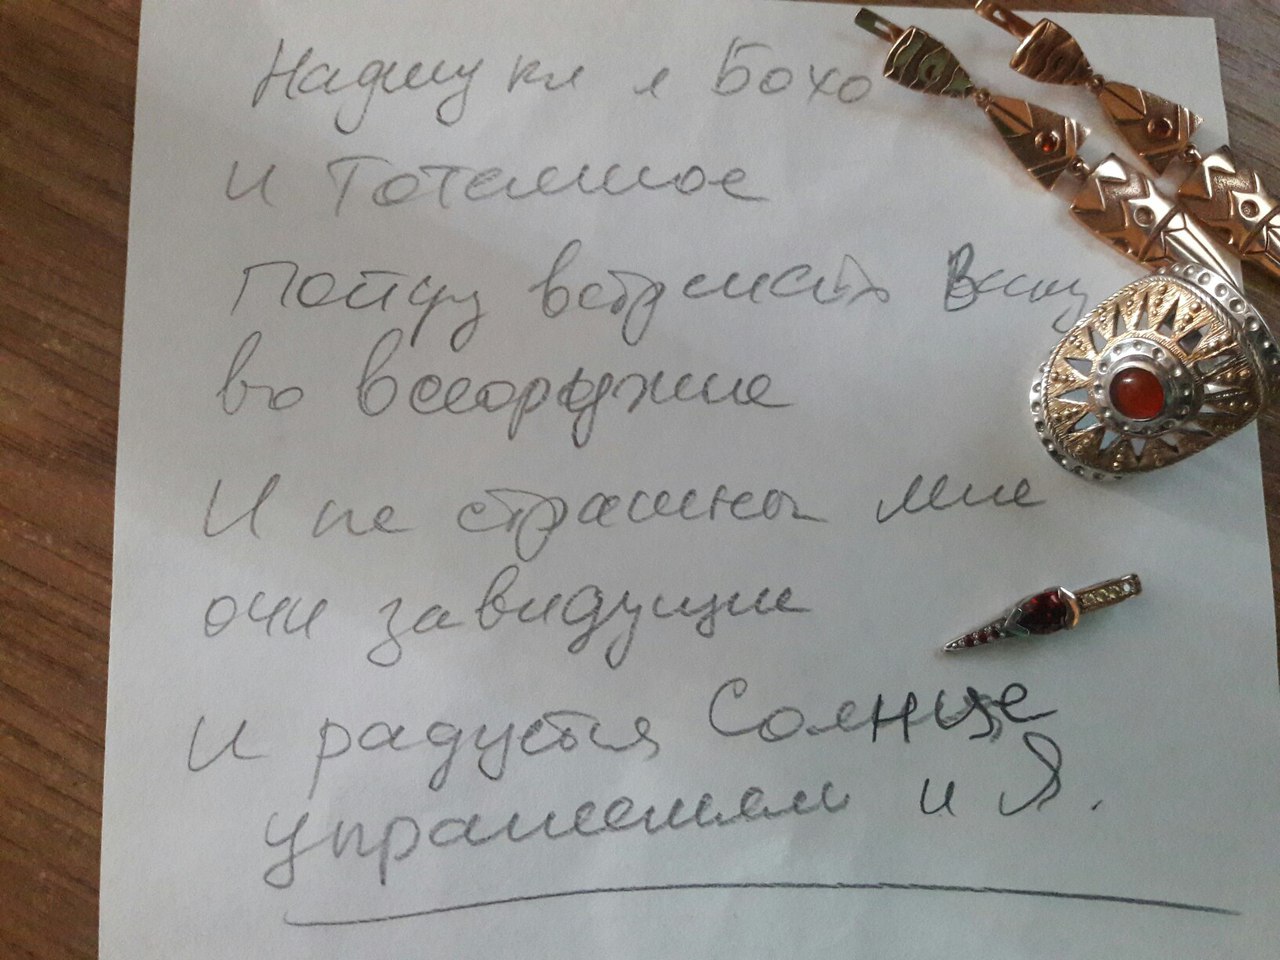 Надену кл я Бохо
и Тотемное
Пойду встречать Весну
во всеоружие
И не страшны мне
очи завидущие
И радуется Солнце
украшениям и Я.